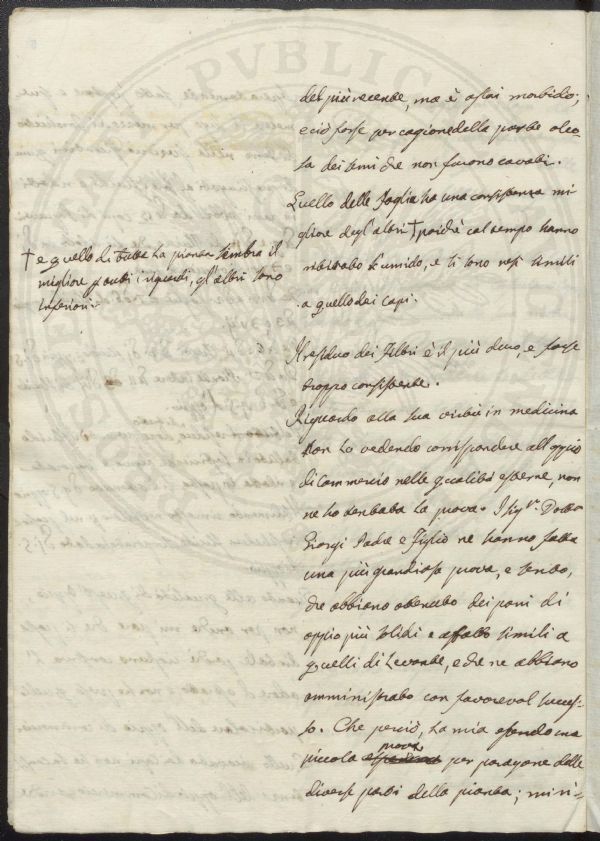 del più recente, ma è assai morbido;
e ciò forse per cagione della parte oleo-
sa dei semi che non furono cavati.
Quello delle foglia ha una consistenza mi-
gliore degl'altri † poichè col tempo hanno
ributtato l'umido, e si sono resi simili
a quello dei capi.
† e quello di tutta la pianta sembra il
migliore p tutti i riguardi, gl'altri sono
inferiori.
Il residuo dei filtri è il più duro, e forse
troppo consistente.
Riguardo alla sua virtù in medicina
non lo vedendo corrispondere all'oppio
di commercio nelle qualità esterne, non
ne ho tentata la prova. I Sig.ri Dottori
Giorgi Padre e Figlio ne hanno fatta
una più grandiosa prova, e sento,
che abbiano ottenuto dei pani di
oppio più solidi e affatto simili a
quelli di Levante, e che ne abbiano
amministrato con favorevol succes-
so. Che perciò, la mia essendo una
piccola prova per paragone delle
diverse parti della pianta; mi ri-